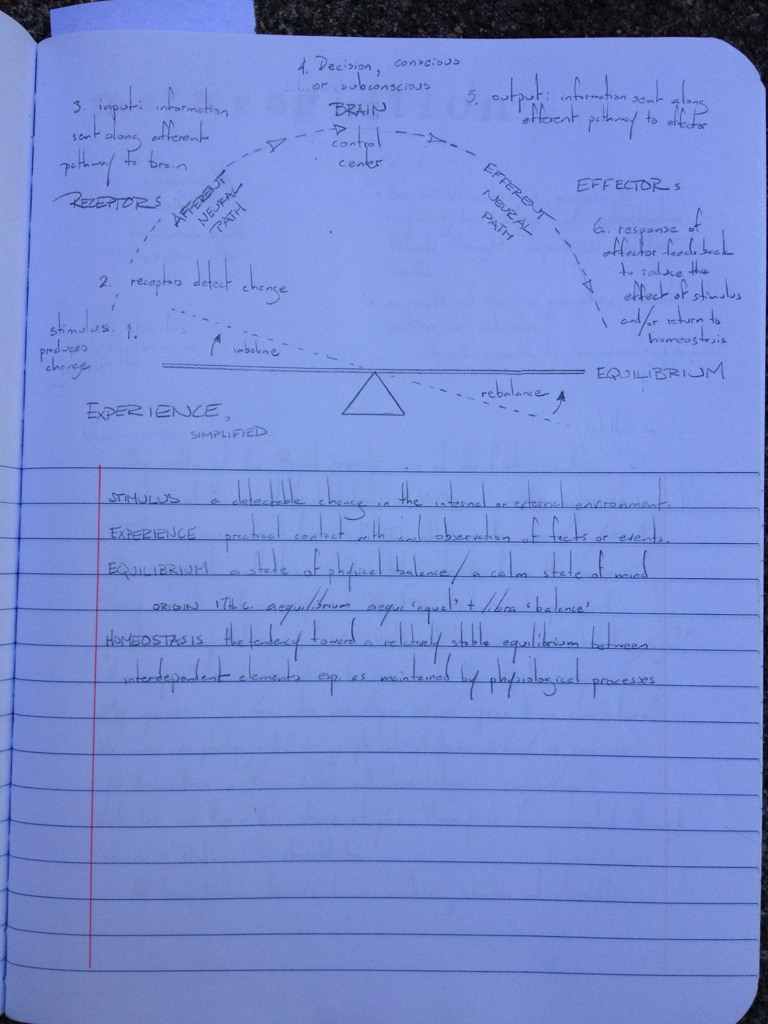 4. Decision, conscious
or subconscious
BRAIN
control
center
3. input: information
sent along afferent
pathway to brain
RECEPTORS
AFFERENT
NEURAL
PATH
5. output: information sent along
efferent pathway to effector
EFFERENT
NEURAL
PATH
EFFECTORS
6. response of
effector feeds back
to reduce the
effect of stimulus
and/or return to
homeostasis
2. receptors detect change
stimulus 1.
produces
change
imbalance
EQUILIBRIUM
rebalance
EXPERIENCE,
SIMPLIFIED
STIMULUS a detectable change in the internal or external environment.
EXPERIENCE practical contact with and observation of facts or events.
EQUILIBRIUM a state of physical balance / a calm state of mind
ORIGIN 17th c. aequilibrium aequi 'equal' + libra 'balance'
HOMEOSTASIS the tendency toward a relatively stable equilibrium between
interdependent elements esp. as maintained by physiological processes